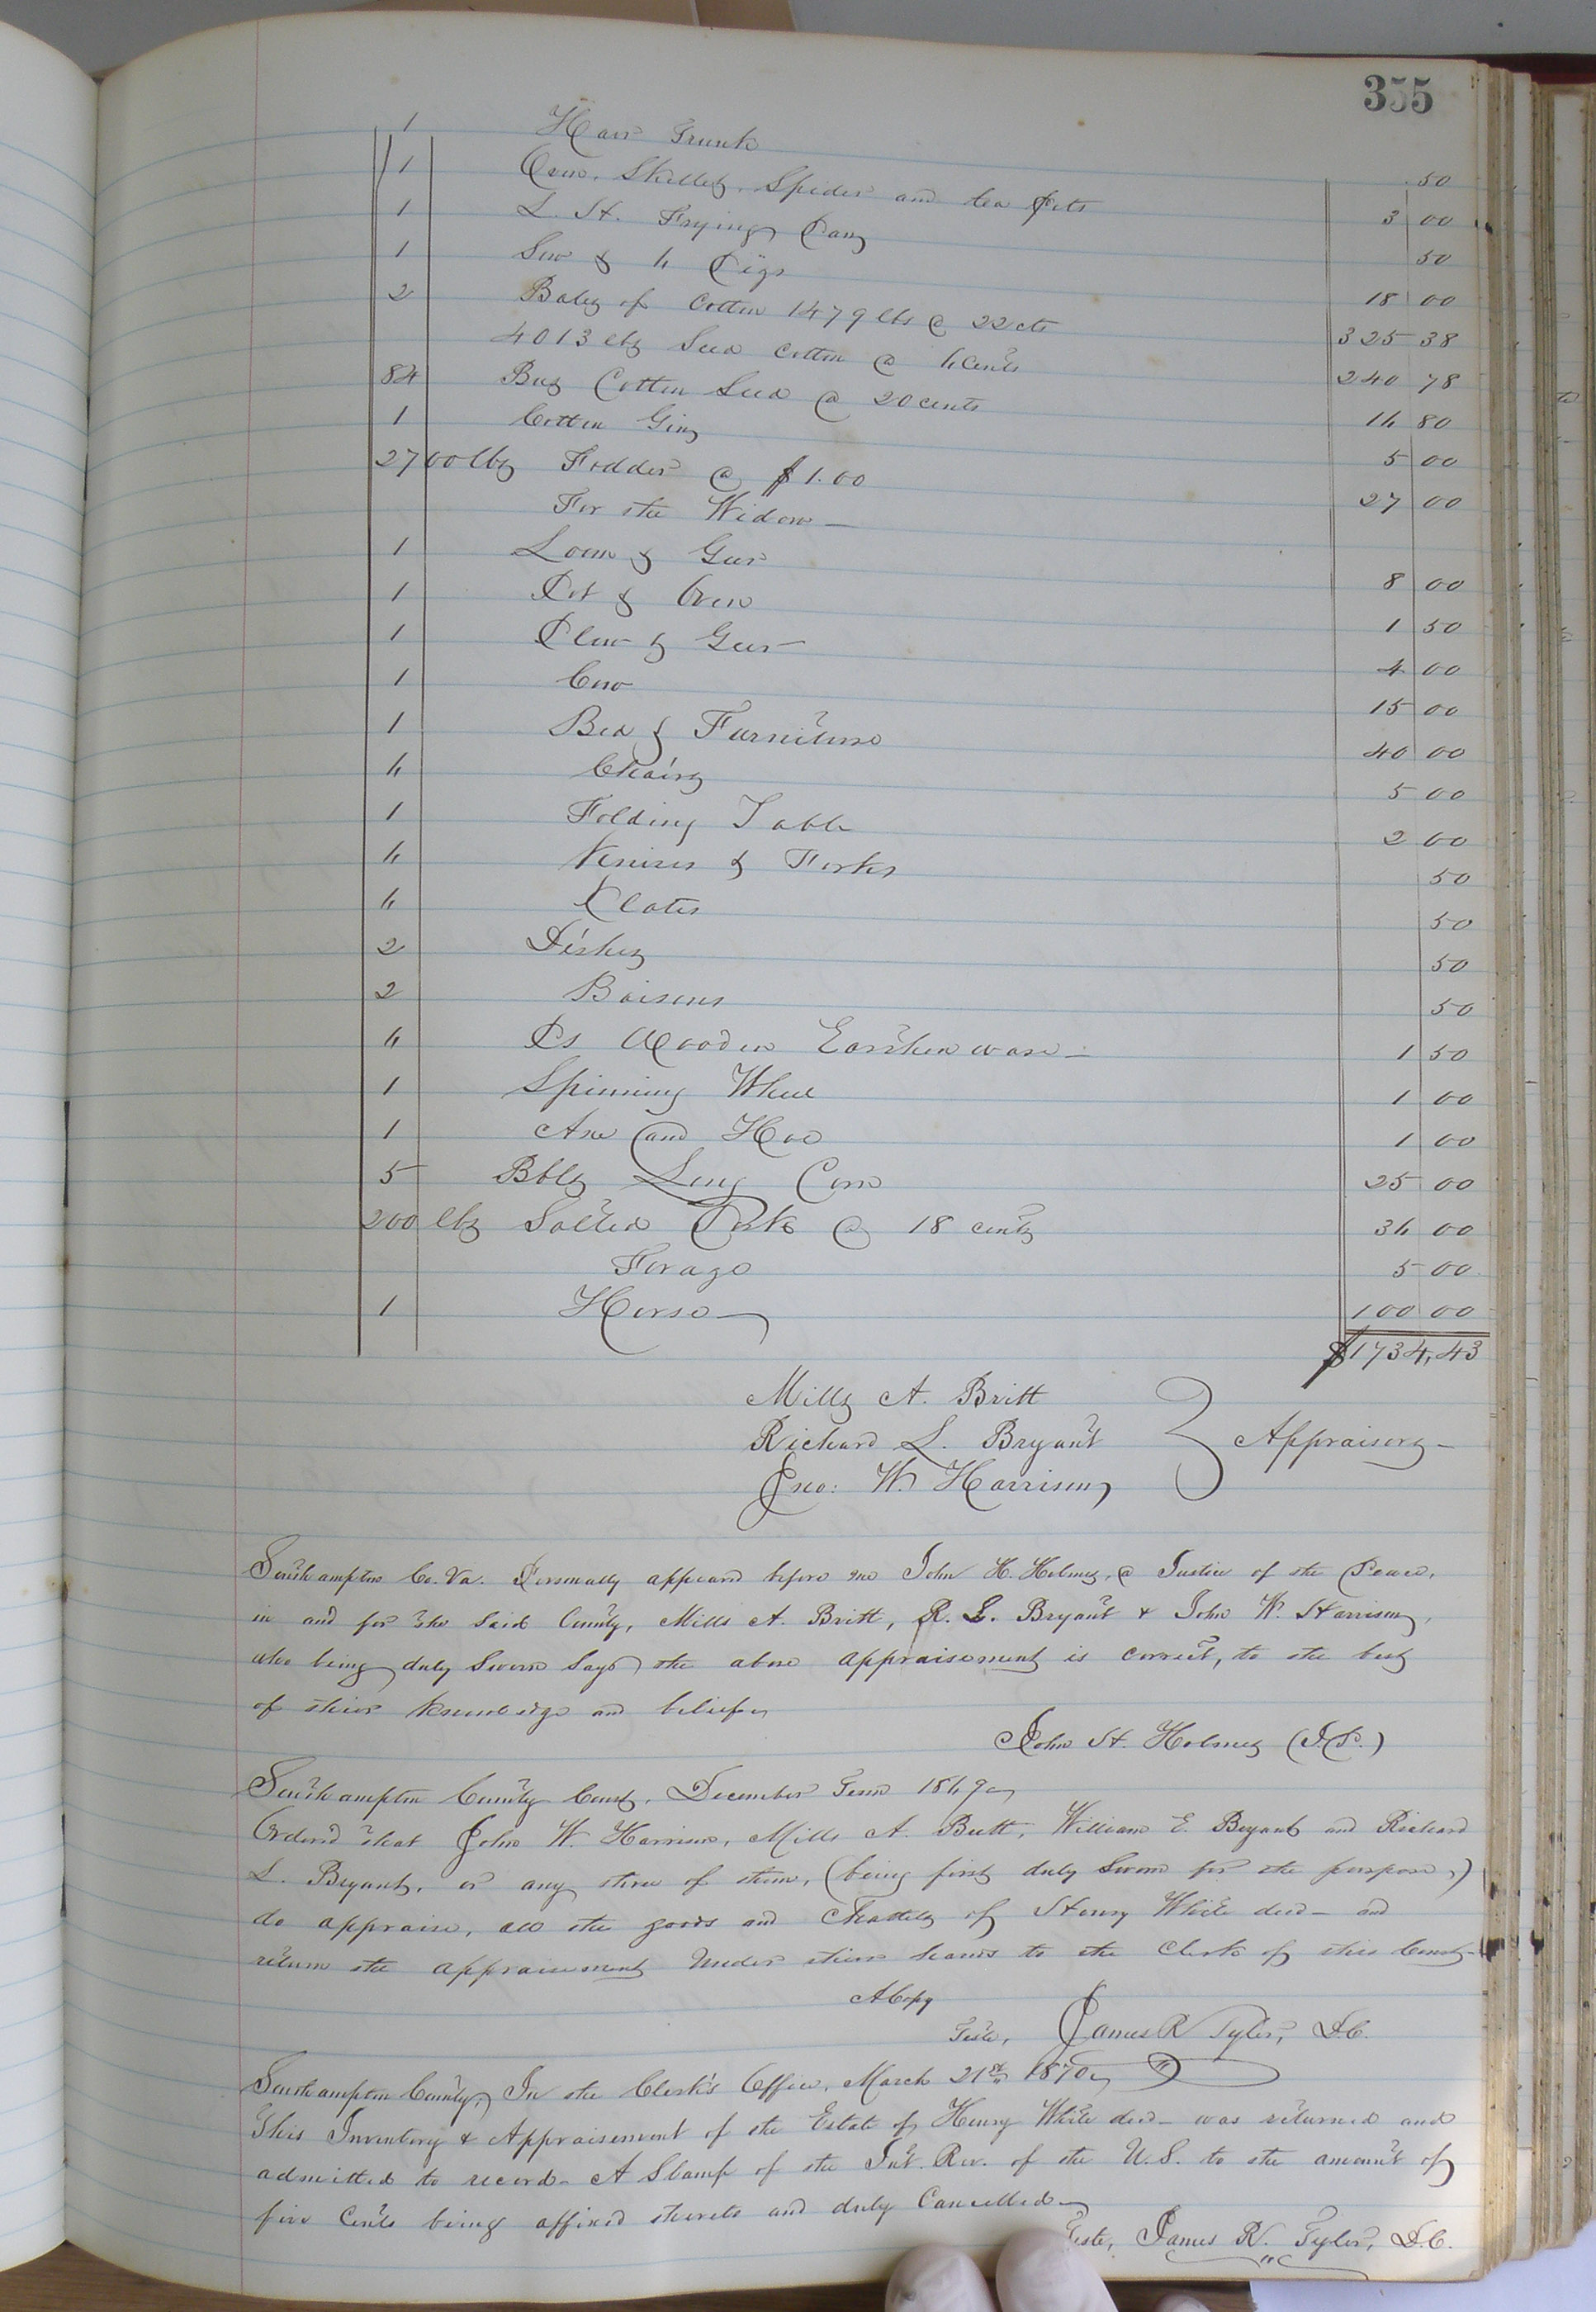 355
1 Hair Trunk .50
1 Oven, Skillet, Spider and tea Pots 3 00
1 L. H. Frying Pan 50
1 Sow & 6 Pigs 18 00
2 Bales of Cotton 1479 lbs @ 22 cts 325 38
4013 lbs Seed Cotton @ 6 cents 240 78
84 Bus Cotton Seed @ 20 cents 16 80
1 Cotton Gin 5 00
2700 lbs Fodder @ $1.00 27 00
For the Widow —
1 Loom & Gear 8 00
1 Pot & Oven 1 50
1 Plow & Gear 4 00
1 Cow 15 00
1 Bed & Furniture 40 00
6 Chairs 5 00
1 Folding Table 2 00
6 Knives & Forks 50
6 Plates 50
2 Dishes 50
2 Baisens 50
6 Ps Wooden Earthen ware — 1 50
1 Spinning Wheel 1 00
1 Axe and Hoe 1 00
5 Bbls Long Corn 25 00
200 lbs Salted Pork @ 18 cents 36 00
Forage 5 00
1 Horse 100 00
$1734,43
Mills A. Britt
Richard L. Bryant } Appraisers —
Jno: W. Harrison
Southampton Co. Va. Personally appeard before me John H. Holmes, a Justice of the Peace,
in and for the Said County, Mills A. Britt, R. L. Bryant & John W. Harrison,
who being duly Sworn Says the above appraisement is correct, to the best
of their Knowledge and belief
John H. Holmes (J.P.)
Southampton County Court, December Term 1869
Orderd that John W. Harrison, Mills A. Britt, William E. Bryant and Richard
L. Bryant, or any three of them, (being first duly Sworn for the purpose,)
do appraise, all the goods and Chattels of Henry White decd — and
return the appraisement under their hands to the Clerk of this Court —
A Copy
Teste, James R Tyler, D.C.
Southampton County,) In the Clerk's Office, March 21st 1870
This Inventory & Appraisement of the Estate of Henry White decd — was returned and
admitted to record — A Stamp of the Int. Rev. of the U.S. to the amount of
five Cents being affixed thereto and duly Cancelled —
Teste, James R. Tyler, D.C.